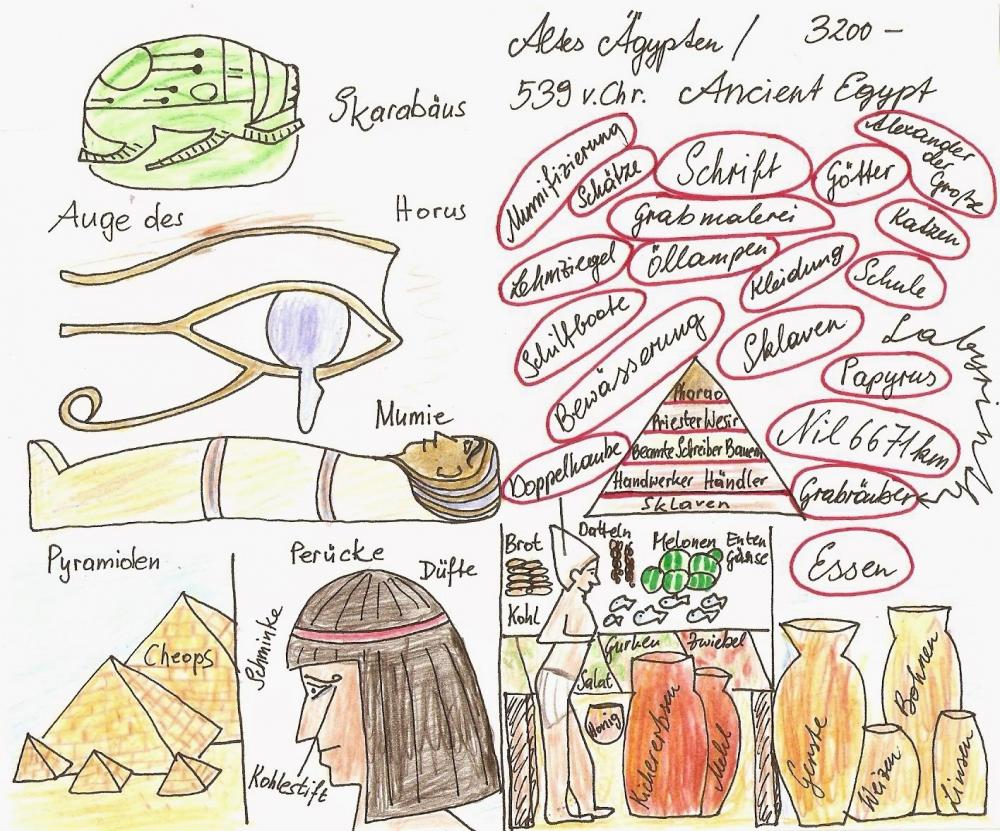 Altes Ägypten / 3200 –
539 v. Chr. Ancient Egypt
Skarabäus
Auge des Horus
Mumie
Mumifizierung
Schätze
Schrift
Götter
Alexander
der
Große
Grabmalerei
Katzen
Lehmziegel
Öllampen
Kleidung
Schule
Schilfboote
Bewässerung
Sklaven
Labyrinth
Papyrus
Nil 6671 km
Doppelhaube
Grabräuber
Essen
Pharao
Priester Wesir
Beamte Schreiber Bauern
Handwerker Händler
Sklaven
Pyramiden
Cheops
Perücke
Düfte
Schminke
Kohlestift
Brot
Datteln
Melonen
Enten
Gänse
Kohl
Gurken
Zwiebel
Salat
Honig
Kichererbsen
Mehl
Gerste
Weizen
Bohnen
Linsen